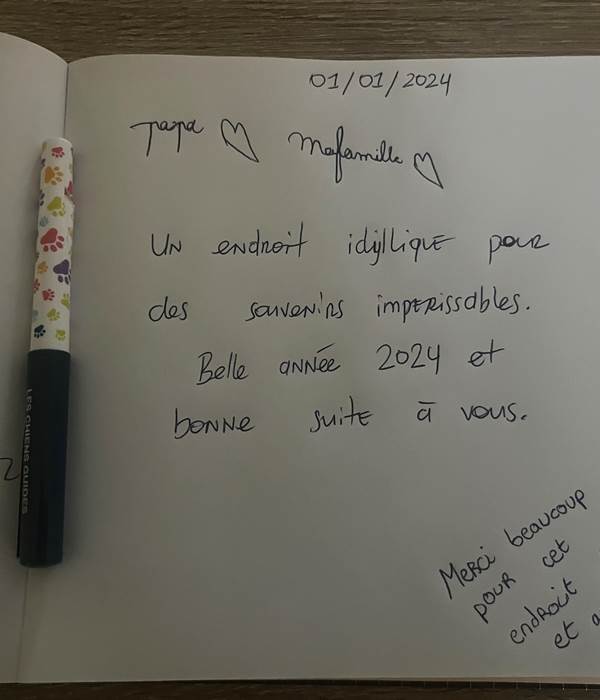 01/01/2024
Papa ♡ Mafamille ♡
Un endroit idyllique pour
des souvenirs imperissables.
Belle année 2024 et
bonne suite à vous.
Merci beaucoup
pour cet
endroit
et
LES CHIENS GUIDES